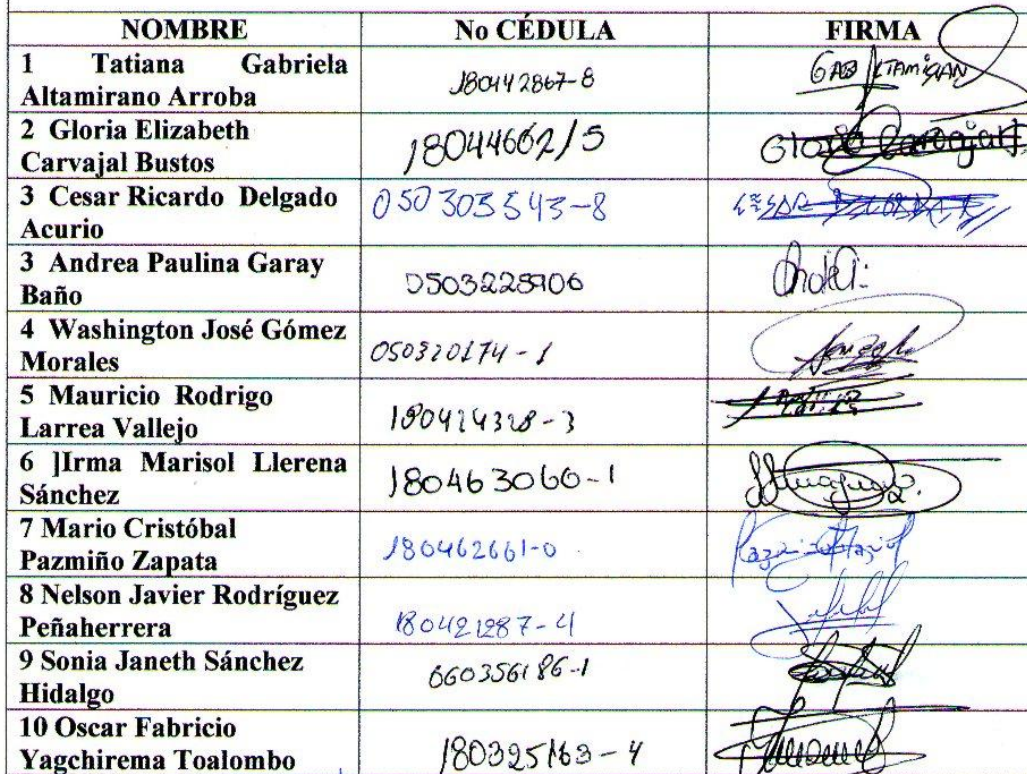 NOMBRE No CÉDULA FIRMA
1 Tatiana Gabriela
Altamirano Arroba 180442867-8 GAB ALTAMIRAN
2 Gloria Elizabeth
Carvajal Bustos 1804466215 Gloria Carvajal
3 Cesar Ricardo Delgado
Acurio 050303543-8 CESAR
3 Andrea Paulina Garay
Baño 0503225906
4 Washington José Gómez
Morales 050320174-1
5 Mauricio Rodrigo
Larrea Vallejo 180424328-3
6 ]Irma Marisol Llerena
Sánchez 180463060-1
7 Mario Cristóbal
Pazmiño Zapata 180462661-0
8 Nelson Javier Rodríguez
Peñaherrera 180421287-4
9 Sonia Janeth Sánchez
Hidalgo 060356186-1
10 Oscar Fabricio
Yagchirema Toalombo 180325163-4